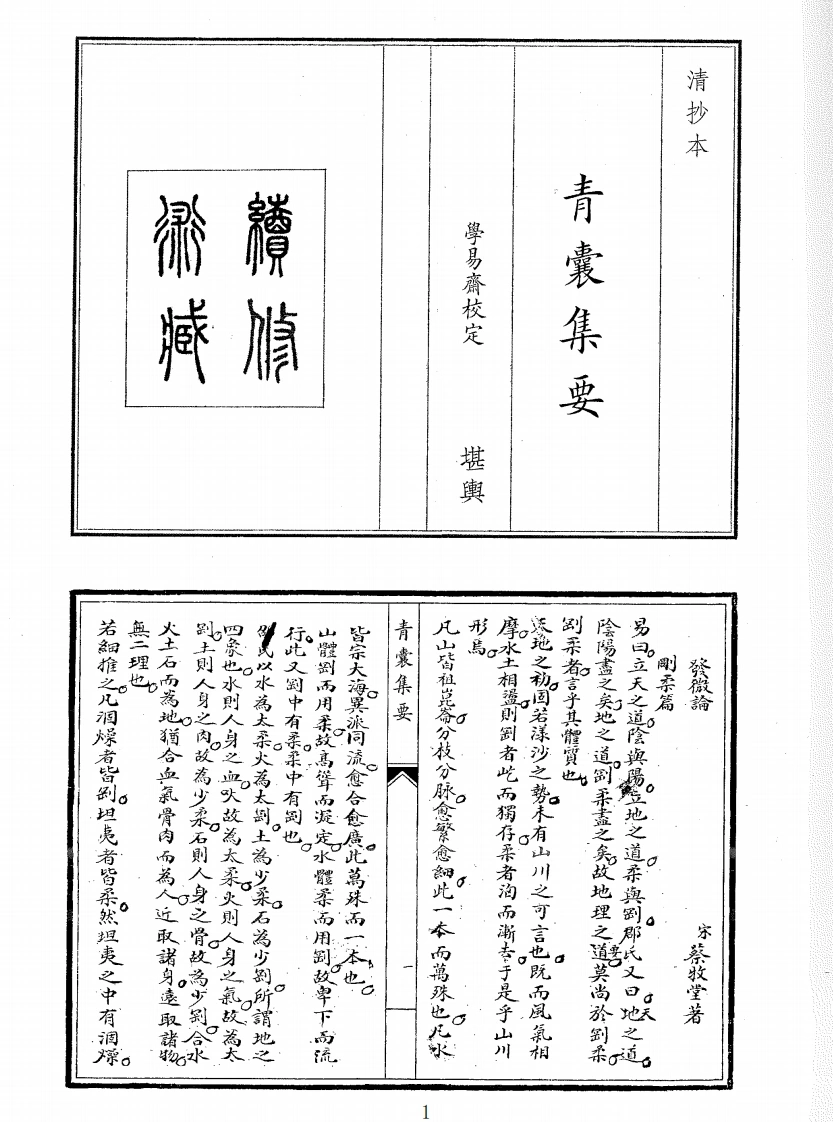 清抄本
青囊集要
學易齋校定　堪輿
續修
術藏
發微論
剛柔篇　宋　蔡牧堂著
易曰立天之道陰與陽立地之道柔與剛邵氏又曰天地之道
陰陽盡之矣地之道剛柔盡之矣故地理之道要莫尚於剛柔
剛柔者言乎其體質也
天地之初固若漾沙之勢未有山川之可言也既而風氣相
摩水土相盪則剛者屹而獨存柔者洶而漸去于是乎山川
形焉
凡山皆祖崑崙分枝分脉愈繁愈細此一本而萬殊也凡水
青囊集要
一
皆宗大海異派同流愈合愈廣此萬殊而一本也
山體剛而用柔故高聳而凝定水體柔而用剛故卑下而流
行此又剛中有柔柔中有剛也
邵氏以水為太柔火為太剛土為少柔石為少剛所謂地之
四象也水則人身之血故為太柔火則人身之氣故為太
剛土則人身之肉故為少柔石則人身之骨故為少剛合水
火土石而為地猶合血氣骨肉而為人近取諸身遠取諸物
無二理也
若細推之凡涸燥者皆剛坦夷者皆柔然坦夷之中有涸燥
1